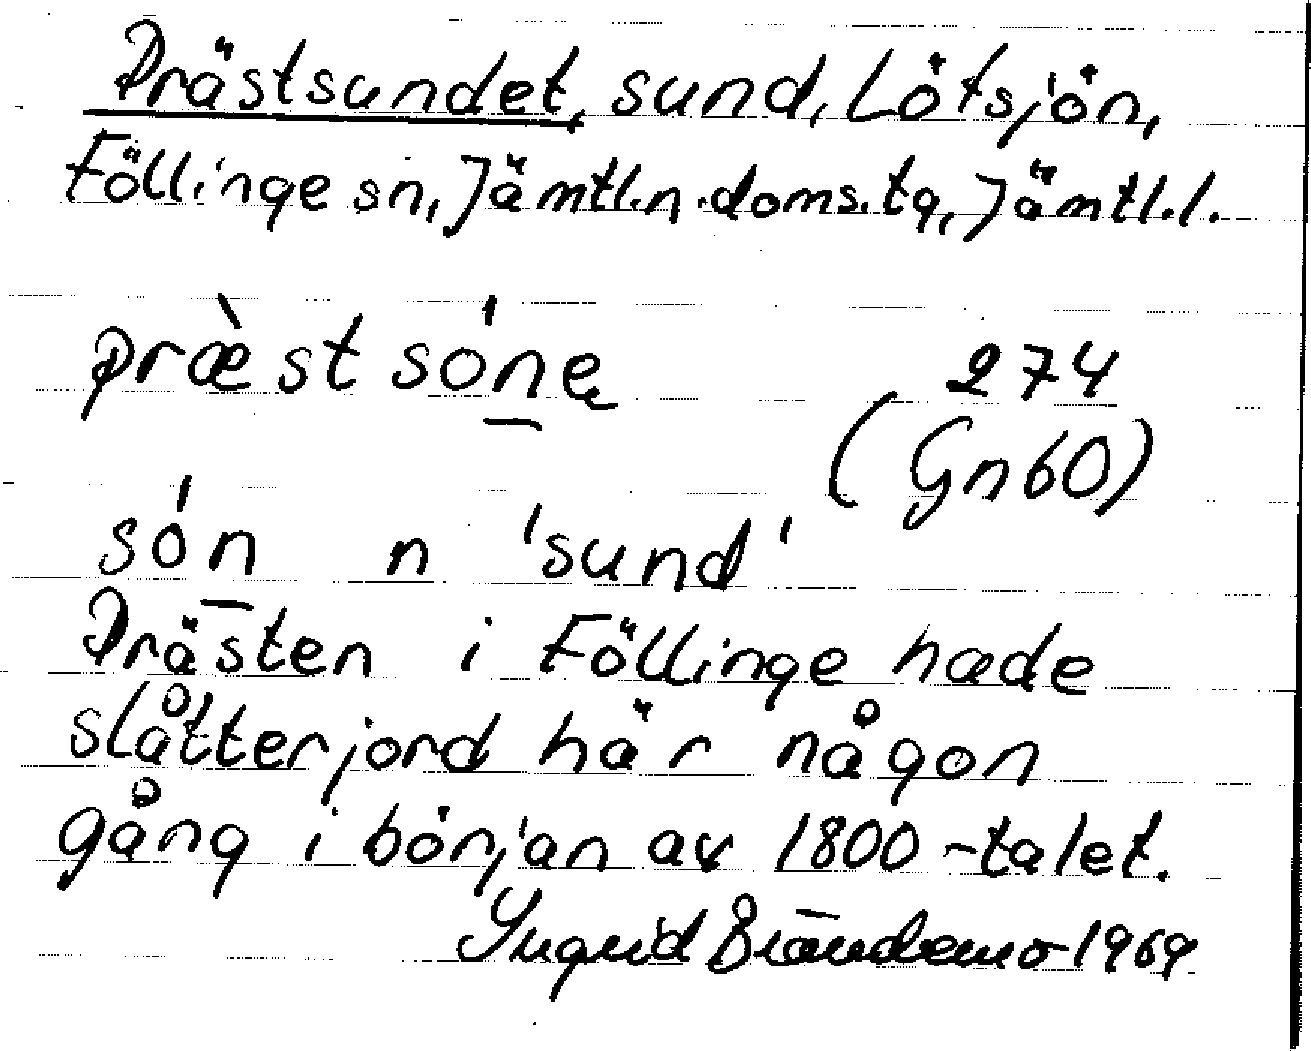 Prästsundet, sund, Lötsjön,
Föllinge sn, Jämtl.n.doms.tg, Jämtl.l.
præ̀st són̲e 274
(Gn60)
són̲ n 'sund'
Prästen i Föllinge hade
slåtterjord här någon
gång i början av 1800-talet.
Ingrid Brändemo 1969